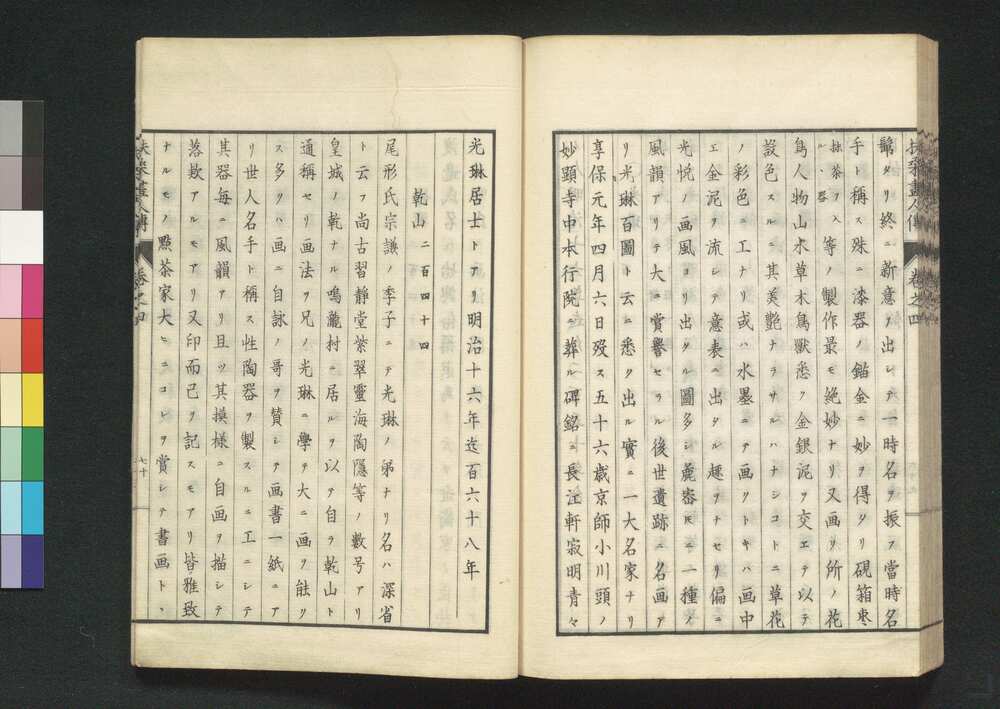 扶桑畫人傳 卷之四
髴タリ終ニ新意ヲ出シテ一時名ヲ振フ當時名
手ト稱ス殊ニ漆器ノ鎰金ニ妙ヲ得タリ硯箱枣
抹茶ヲ入ル器等ノ製作最モ絶妙ナリ又画リ所ノ花
鳥人物山水草木鳥獣悉ク金銀泥ヲ交エテ以テ
設色スルニ其美艷ナラサルハナシコトニ草花
ノ彩色ニエナリ或ハ水墨ニテ画クトキハ画中
エ金泥ヲ流シテ意表ニ出タル趣ヲナセリ偏ニ
光悦ノ画風ヨリ出タル圖多シ麁宻𪜈ニ一種ノ
風韻アリテ大ニ賞譽セラル後世遺跡ニ名画ア
リ光琳百圖ト云ニ悉ク出ル實ニ一大名家ナリ
享保元年四月六日歿ス五十六歳京師小川頭ノ
妙顕寺中本行院ニ葬ル碑銘ニ長江軒寂明青々
光琳居士トアリ明治十六年迄百六十八年
乾山 二百四十四
尾形氏宗謙ノ季子ニテ光琳ノ弟ナリ名ハ深省
ト云フ尚古習静堂紫翠靈海陶隠等ノ數号アリ
皇城ノ乾ナル鳴瀧村ニ居ルヲ以テ自ラ乾山ト
通稱セリ画法ヲ兄ノ光琳ニ學テ大ニ画ヲ能ク
ス多クハ画ニ自詠ノ哥ヲ賛シテ画書一紙ニア
リ世人名手ト稱ス性陶器ヲ製スルニ工ニシテ
其器毎ニ風韻アリ且ツ其摸様ニ自画ヲ描シテ
落欵アルモアリ又印而已ヲ記スモアリ皆雅致
ナルモノ點茶家大ヒニコレヲ賞シテ書画ト、
扶桑畫人傳 卷之四 七十